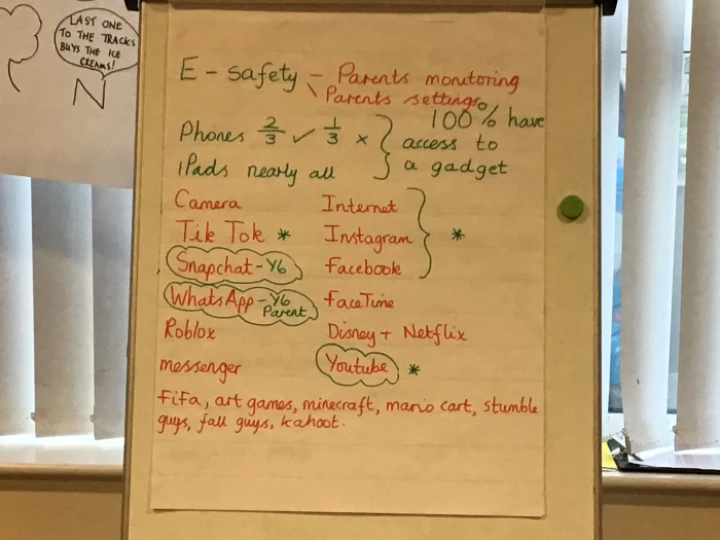 LAST ONE
TO THE TRACKS
BUYS THE ICE
CREAMS!
N
E - safety - Parents monitoring
\ Parents settings
Phones 2/3 ✓ 1/3 x } 100% have
access to
iPads nearly all a gadget
Camera Internet
Tik Tok * Instagram } *
Snapchat - Y6 Facebook
WhatsApp - Y6 FaceTime
Parent
Roblox Disney + Netflix
messenger Youtube *
Fifa, art games, minecraft, mario cart, stumble
guys, fall guys, kahoot.